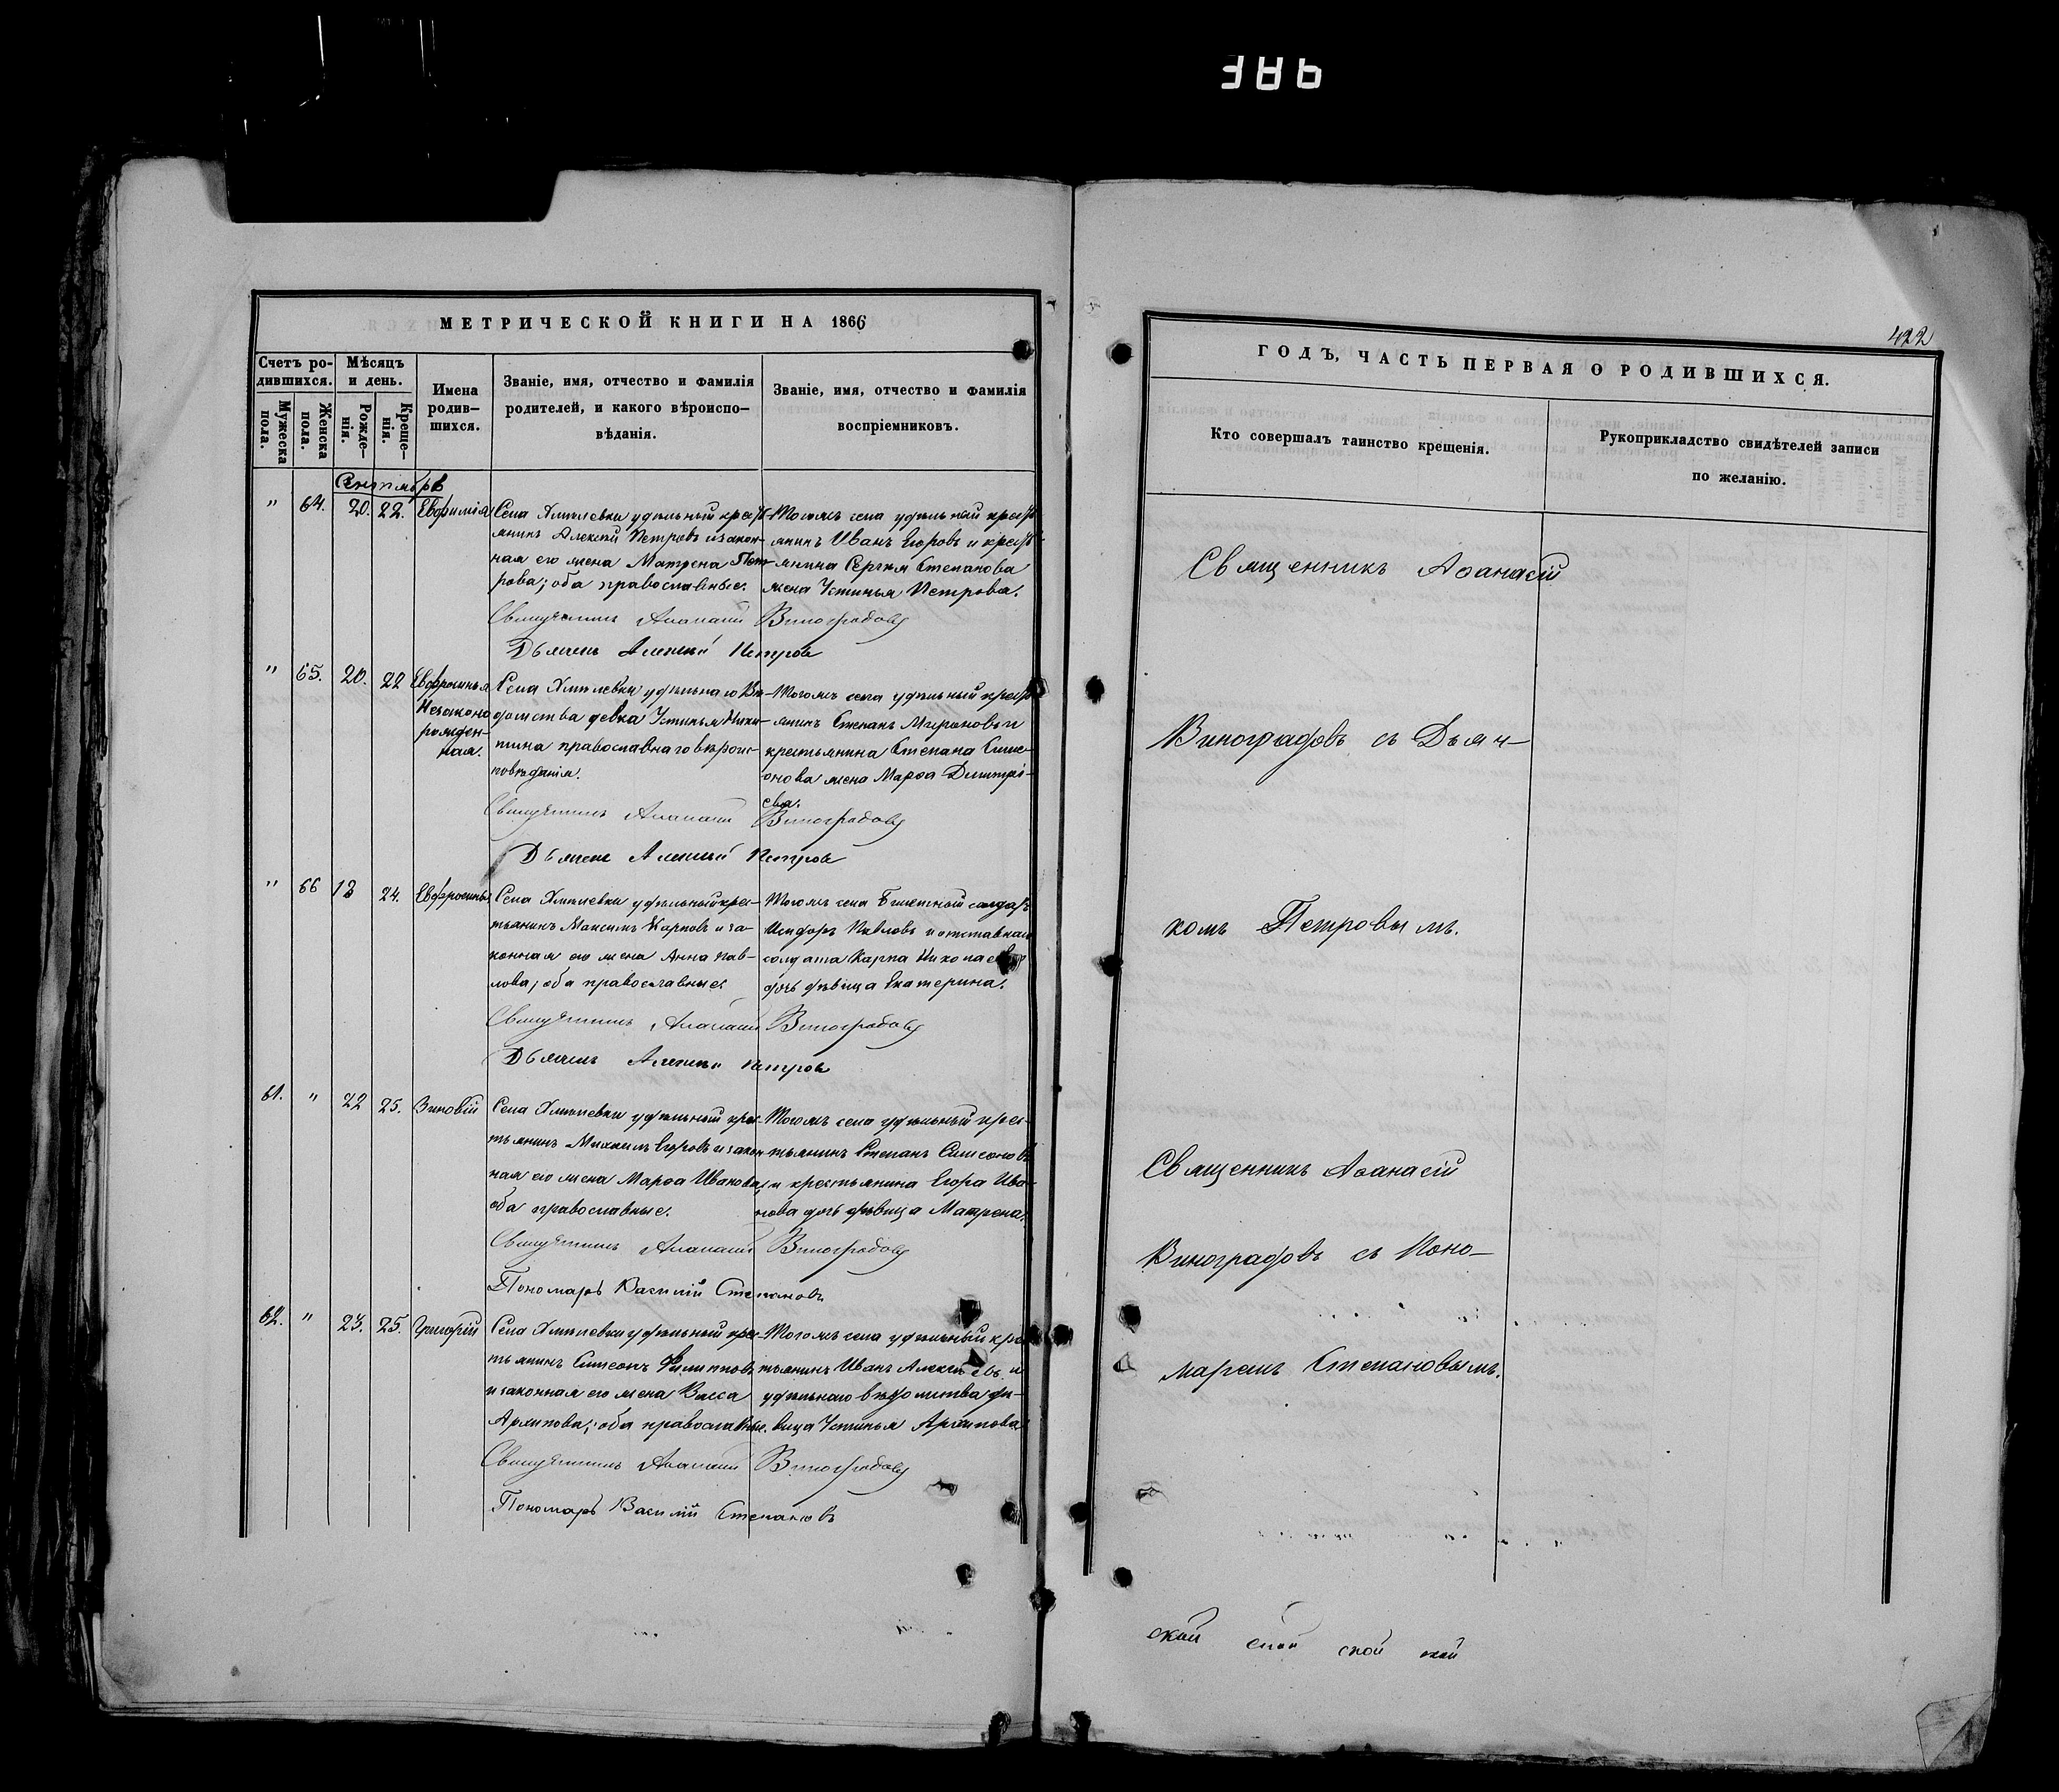 386
МЕТРИЧЕСКОЙ КНИГИ НА 1866
Счетъ ро-
дившихся.
Мужеска
пола.
Женска
пола.
Мѣсяцъ
и день.
Рожде-
нія.
Креще-
нія.
Имена
родив-
шихся.
Званіе, имя, отчество и фамилія
родителей, и какого вѣроиспо-
вѣданія.
Званіе, имя, отчество и фамилія
воспріемниковъ.
Сентябрь
" 64. 20. 22. Евфимія
Села Хмѣлевки удѣльный кресть-
янинъ Алексѣй Петровъ и закон-
ная его жена Матрена Пет-
рова; оба православные.
Тогожъ села удѣльный кресть-
янинъ Иванъ Егоровъ и кресть-
янина Сергѣя Степанова
жена Устинья Петрова.
Священникъ Аѳанасій Виноградовъ
Дьячекъ Алексѣй Петровъ
" 65. 20. 22 Евфросинья
Незаконо
рожден-
ная.
Села Хмѣлевки удѣльнаго Вѣ-
домства девка Устинья Ники-
тина православнаго вѣроис-
повѣданія.
Тогожъ села удѣльный кресть
янинъ Степанъ Мироновъ и
крестьянина Степана Симе-
онова жена Марѳа Димитрі-
ева.
Священникъ Аѳанасій Виноградовъ
Дьячекъ Алексѣй Петровъ
" 66 18 24. Евфросинья
Села Хмѣлевки удѣльный крес-
тьянинъ Максимъ Карповъ и за-
конная его жена Анна Пав-
лова; оба православные
Тогожъ села Билетный солдатъ
Исидоръ Павловъ и отставнаго
солдата Карпа Николаева
дочь дѣвица Екатерина.
Священникъ Аѳанасій Виноградовъ
Дьячекъ Алексѣй Петровъ
61. " 22 25. Зиновій
Села Хмѣлевки удѣльный крес-
тьянинъ Михаилъ Егоровъ и закон-
ная его жена Марѳа Иванова;
оба православные.
Тогожъ села удѣльный крес-
тьянинъ Степанъ Симеоновъ
и крестьянина Егора Ива-
нова дочь дѣвица Матрена.
Священникъ Аѳанасій Виноградовъ
Пономарь Василій Степановъ
62. " 23. 25. Григорій
Села Хмѣлевки удѣльный крес-
тьянинъ Симеонъ Филипповъ
и законная его жена Васса
Архипова; оба православные.
Тогожъ села удѣльный крес-
тьянинъ Иванъ Алексѣевъ и
удѣльнаго вѣдомства дѣ-
вица Устинья Архипова
Священникъ Аѳанасій Виноградовъ
Пономарь Василій Степановъ
422
ГОДЪ, ЧАСТЬ ПЕРВАЯ О РОДИВШИХСЯ.
Кто совершалъ таинство крещенія.
Рукоприкладство свидѣтелей записи
по желанію.
Священникъ Аѳанасій
Виноградовъ съ Дьяч-
комъ Петровымъ.
Священникъ Аѳанасій
Виноградовъ съ Поно-
маремъ Степановымъ.
ской ской ской ской